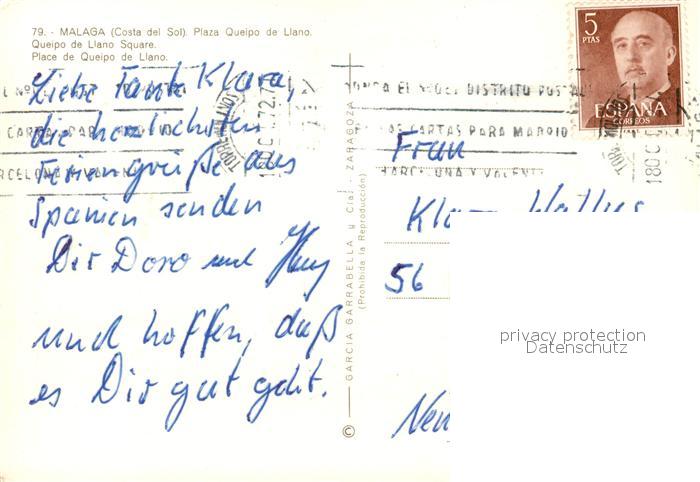 79. - MALAGA (Costa del Sol). Plaza Queipo de Llano.
Queipo de Llano Square.
Place de Queipo de Llano.
Liebe Tante Klara,
die herzlichsten
Feriengrüße aus
Spanien senden
Dir Doro und
und hoffen, daß
es Dir gut geht.
© — GARCIA GARRABELLA y Cía. - ZARAGOZA
(Prohibida la Reproducción)
5
PTAS
ESPAÑA
CORREOS
PONGA EL Nº DEL DISTRITO POSTAL
CARTAS PARA MADRID
BARCELONA Y VALEN
TORREMOLINOS
18 OC
Frau
56
privacy protection
Datenschutz